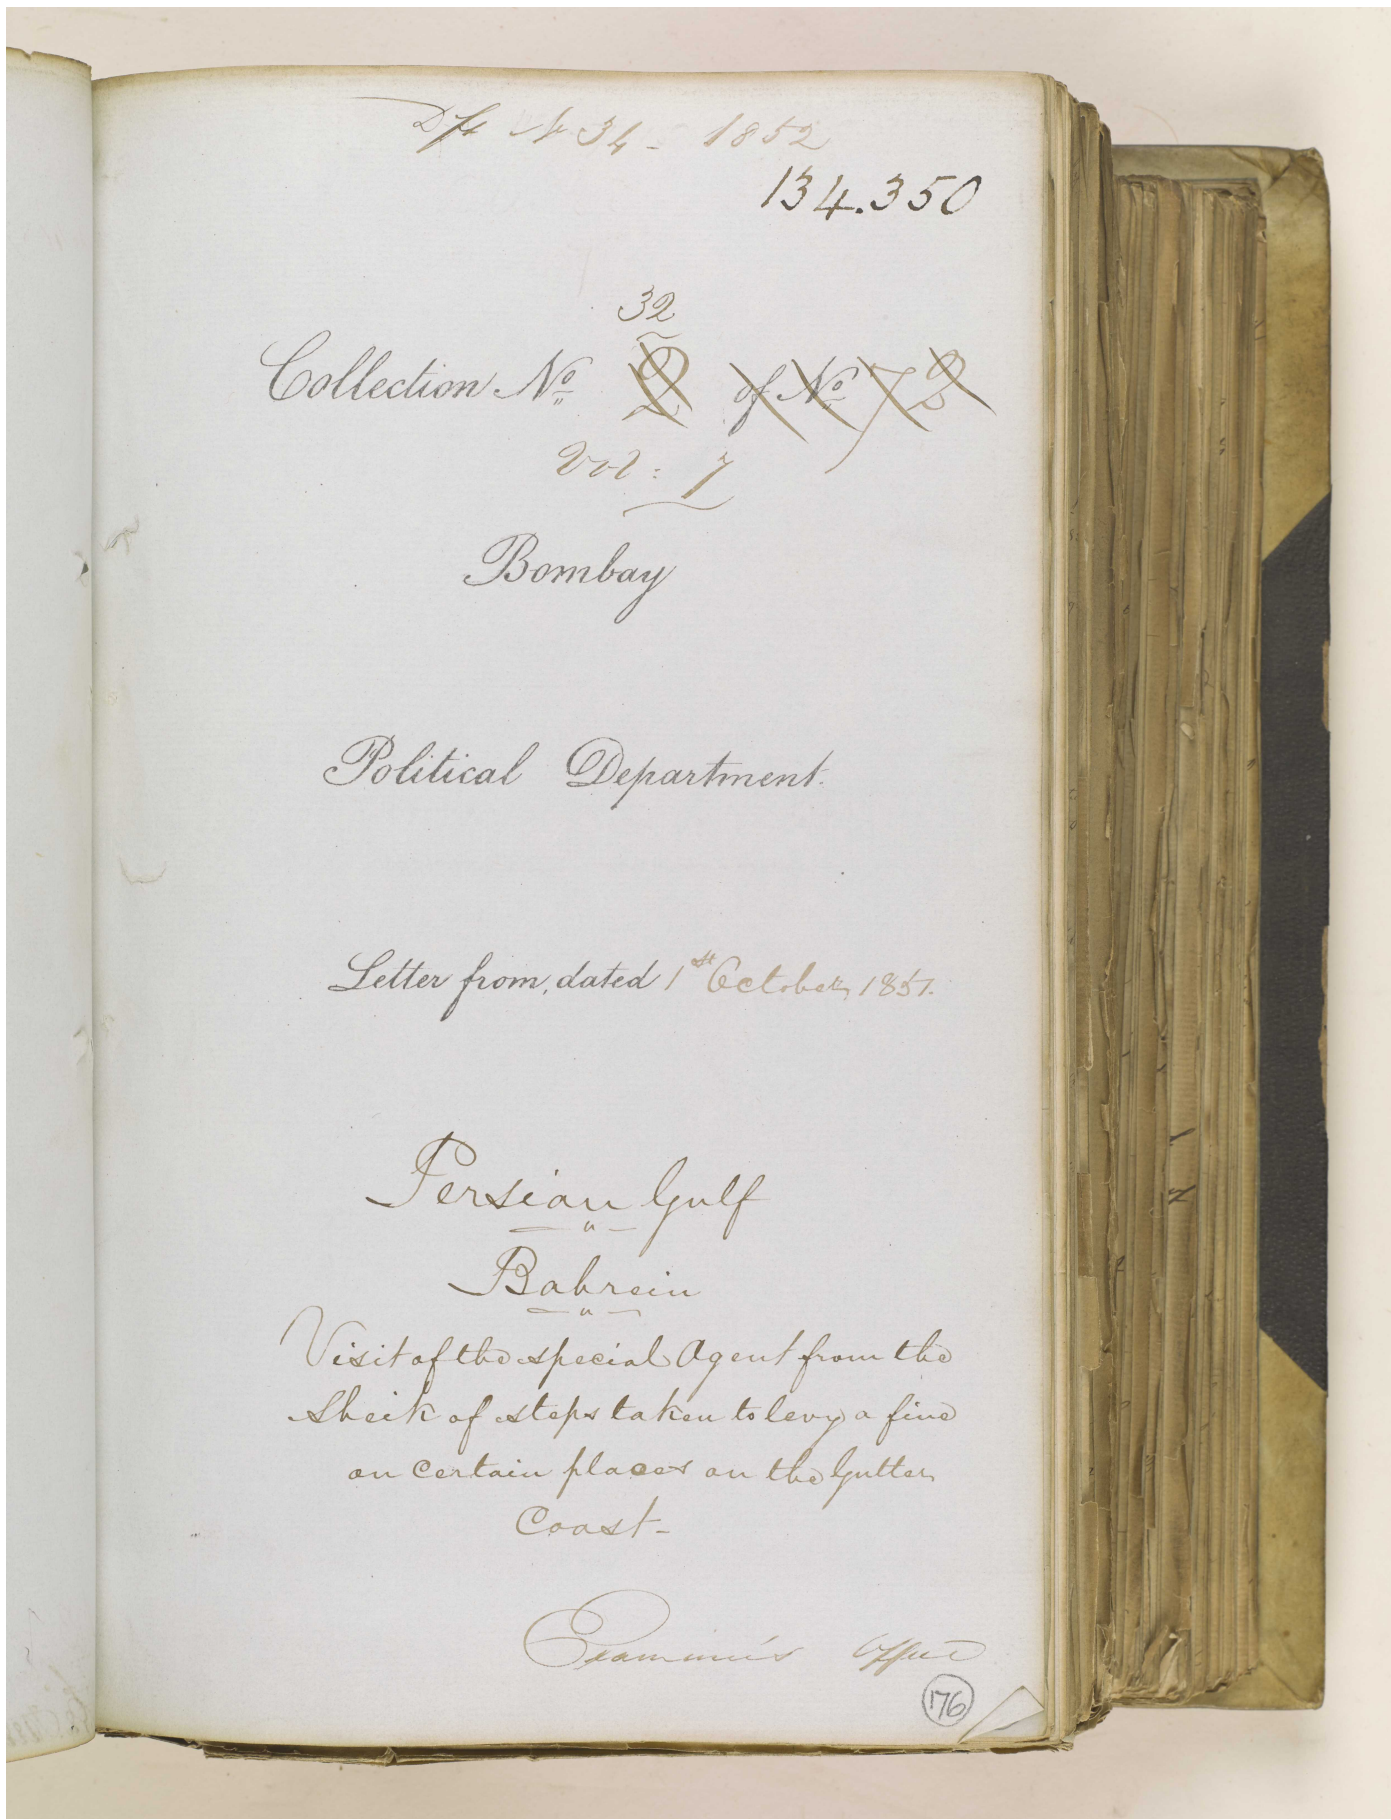 Dft No 34 - 1852
134.350
32
Collection No. 2 of No 72
Vol: 7
Bombay
Political Department.
Letter from, dated 1st October, 1851.
Persian Gulf
Bahrein
Visit of the special Agent from the
Sheik of steps taken to levy a fine
on certain places on the Gutter
Coast-
Examiner's Office
176